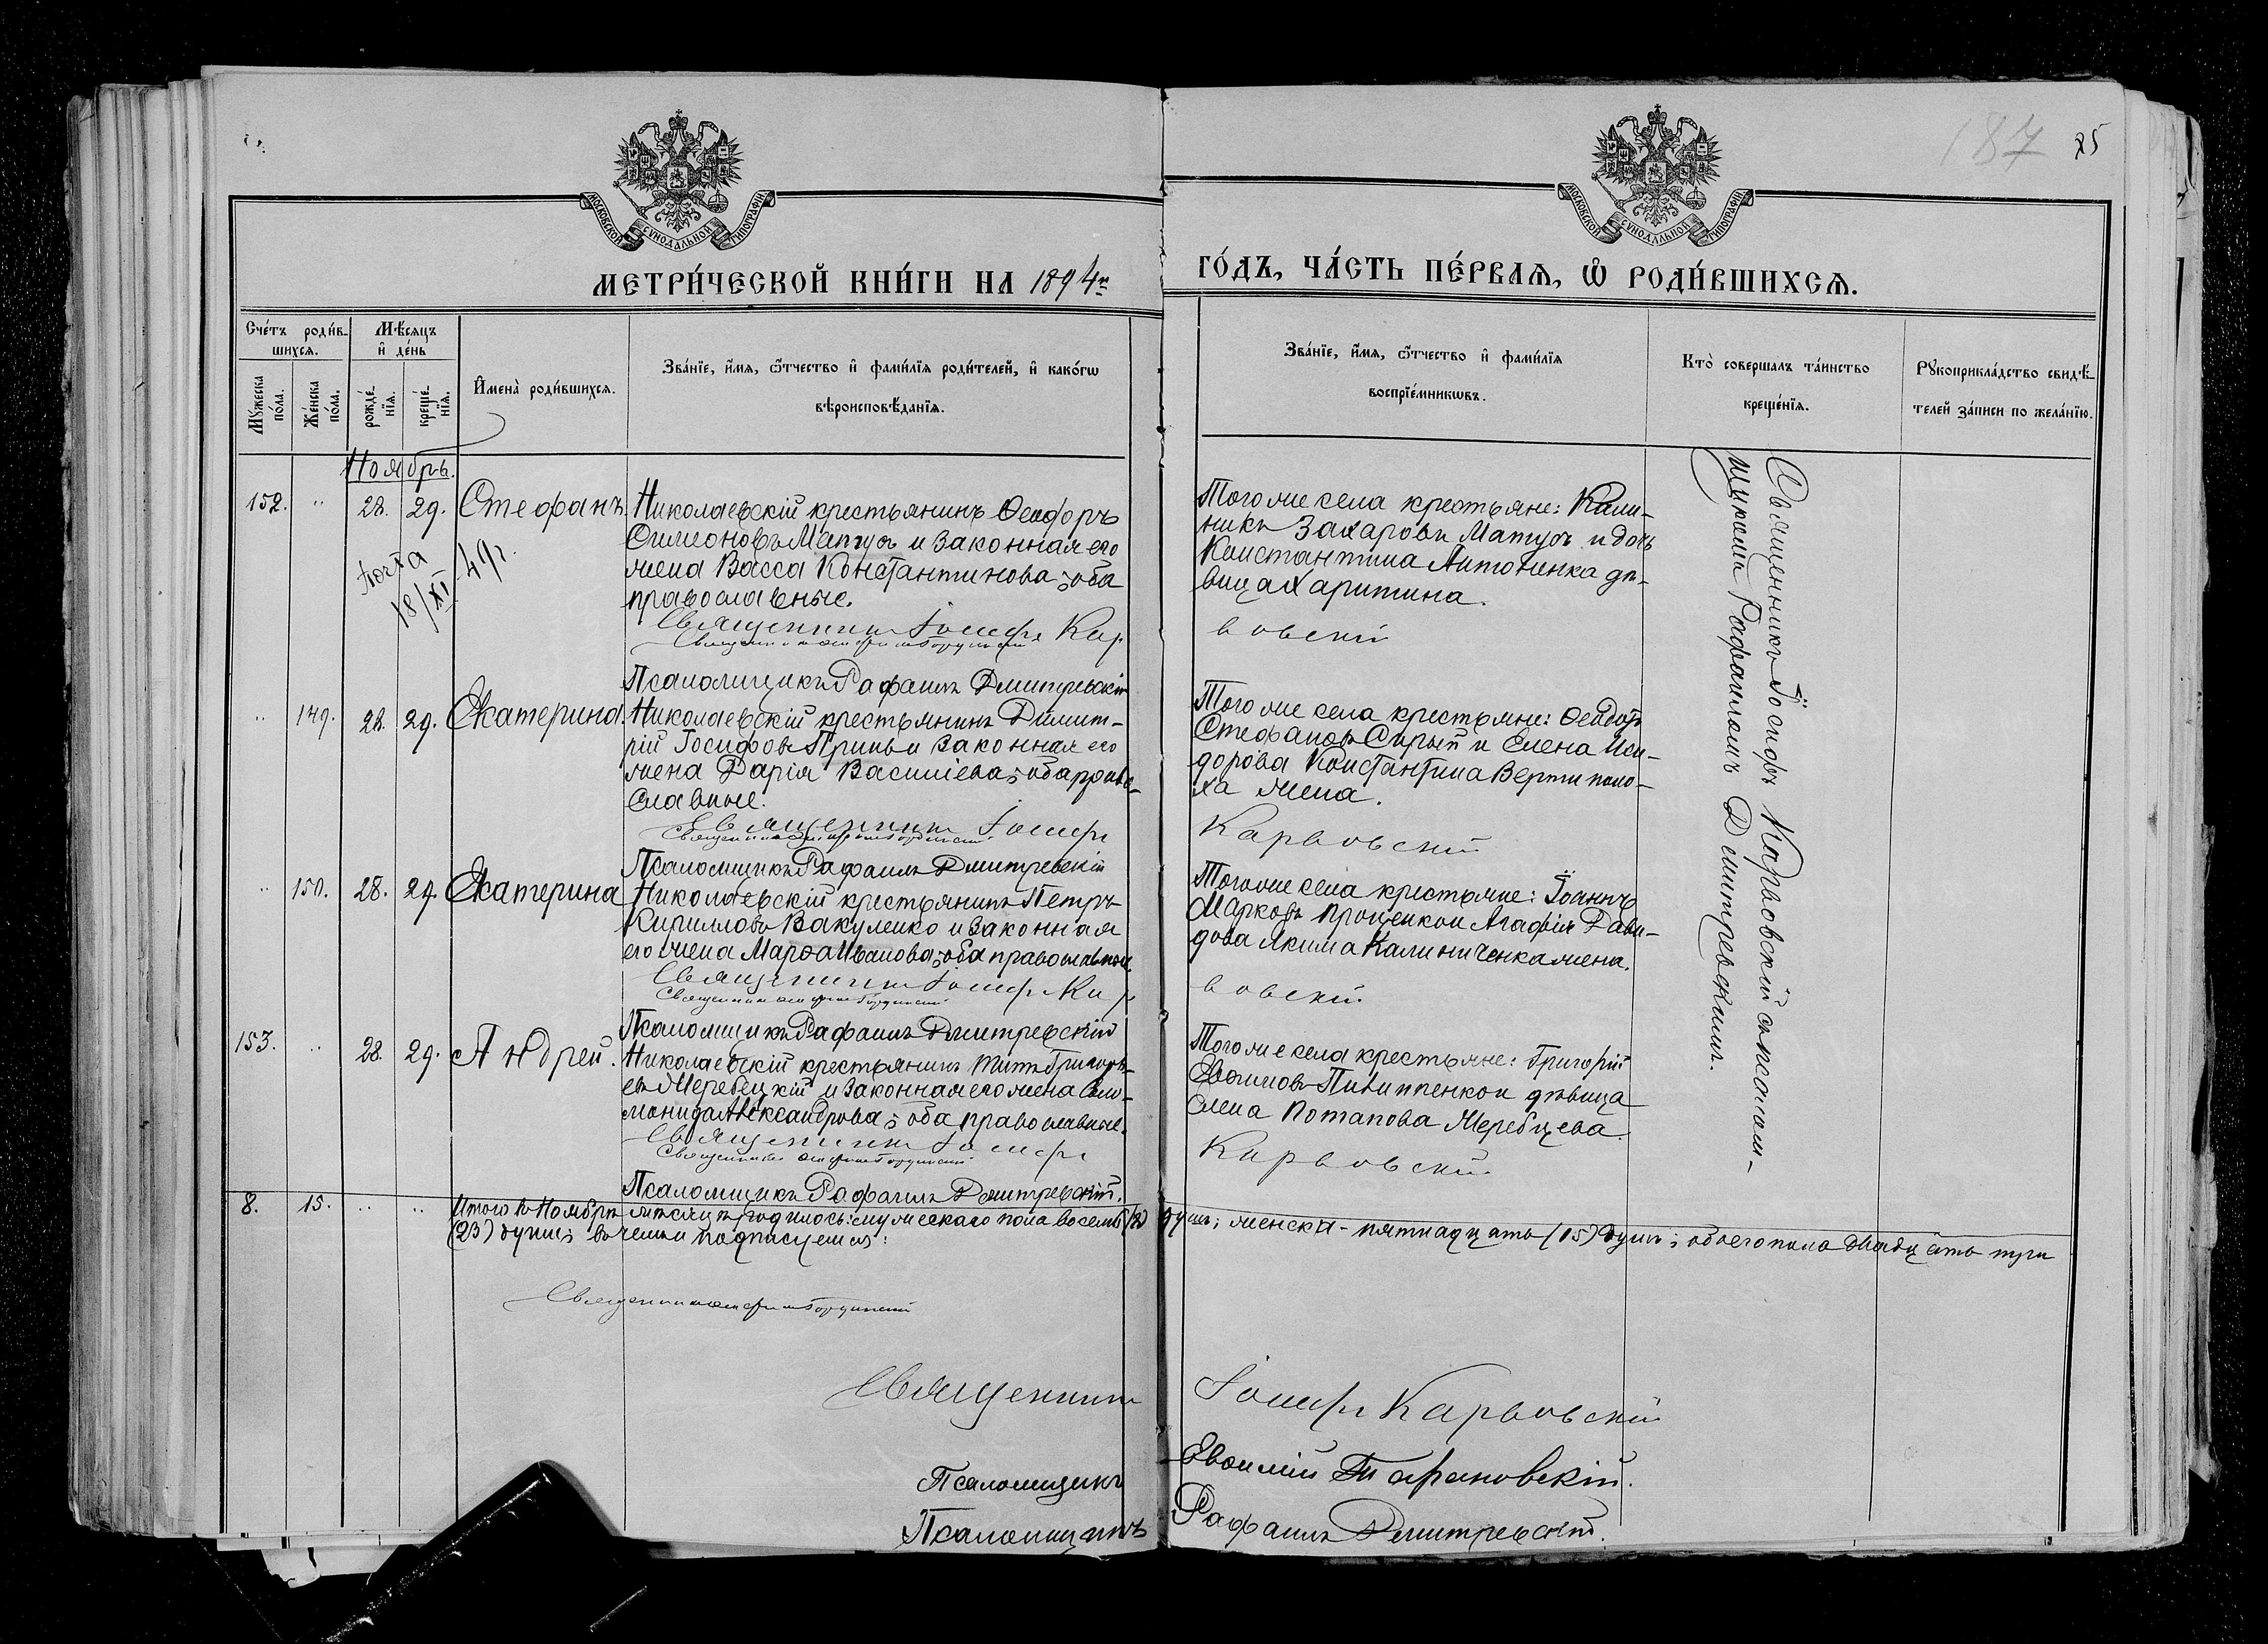 187 25
МОСКОВСКОЙ СѴНОДАЛЬНОЙ ТИПОГРАФІИ
МОСКОВСКОЙ СѴНОДАЛЬНОЙ ТИПОГРАФІИ
МЕТРИ́ЧЕСКОЙ КНИ́ГИ НА 1894й
ГО́ДЪ, ЧА́СТЬ ПЕ́РВАѦ, Ѡ҆ РОДИ́ВШИХСѦ.
Сче́тъ роди́в-
шихсѧ.
Мꙋ́жеска по́ла.
Же́нска по́ла.
Мѣ́сѧцъ
и҆ де́нь
рожде́-
нїѧ.
креще́-
нїѧ.
И҆мена̀ роди́вшихсѧ.
Зва́нїе, и҆́мѧ, ѻ҆́тчество и҆ фами́лїѧ роди́телей, и҆ како́гѡ
вѣроисповѣ́данїѧ.
Зва́нїе, и҆́мѧ, ѻ҆́тчество и҆ фами́лїѧ
воспрїе́мникѡвъ.
Кто̀ соверша́лъ та́инство
креще́нїѧ.
Рꙋкоприкла́дство свидѣ́-
телей за́писи по жела́нїю.
Ноябрь.
152. " 28. 29. Стефанъ.
18/XI-49г.
Николаевскій крестьянинъ Ѳеодоръ
Симеоновъ Матусъ и законная его
жена Васса Константинова; оба
православные.
Священникъ Іосифъ Кар
Псаломщикъ Рафаилъ Дмитревскій
Тогоже села крестьяне: Кали-
никъ Захаровъ Матусъ и дочь
Константина Антоненка дѣ-
вица Харитина.
ьовскій
" 149. 28. 29. Екатерина.
Николаевскій крестьянинъ Димит-
рій Іосифовъ Принь и законная его
жена Дарія Василіева; оба право-
славные.
Священникъ Іосифъ
Псаломщикъ Рафаилъ Дмитревскій
Тогоже села крестьяне: Ѳеодотъ
Стефановъ Сирый и Елена Иси-
дорова Константина Вертиполо-
ха жена.
Карьовскій
" 150. 28. 29. Екатерина
Николаевскій крестьянинъ Петръ
Кирилловъ Вакуленко и законная
его жена Марѳа Иванова; оба православные.
Священникъ Іосифъ Кар
Псаломщикъ Рафаилъ Дмитревскій
Тогоже села крестьяне: Іоаннъ
Марковъ Проценко и Агафія Дави-
дова Якима Калиниченка жена.
ьовскій
153. " 28. 29. Андрей.
Николаевскій крестьянинъ Титъ Григорь-
евъ Жеребецкій и законная его жена Соло-
монида Александрова; оба православные.
Священникъ Іосифъ
Псаломщикъ Рафаилъ Дмитревскій.
Тогоже села крестьяне: Григорій
Евѳимовъ Пилипенко и дѣвица
Елена Потапова Жеребцева.
Карьовскій
Священникъ Іосифъ Карьовскій съ псалом-
щикомъ Рафаиломъ Дмитревскимъ.
8. 15. " " Итого въ Ноябрѣ мѣсяцѣ родилось: мужескаго пола восемь (8) душъ; женска - пятнадцать (15) душъ; обоего пола двадцать три
(23) души; въ чемъ и подписуемся:
Священникъ Іосифъ Карьовскій
Псаломщикъ Евѳимій Тарановскій.
Псаломщикъ Рафаилъ Дмитревскій.